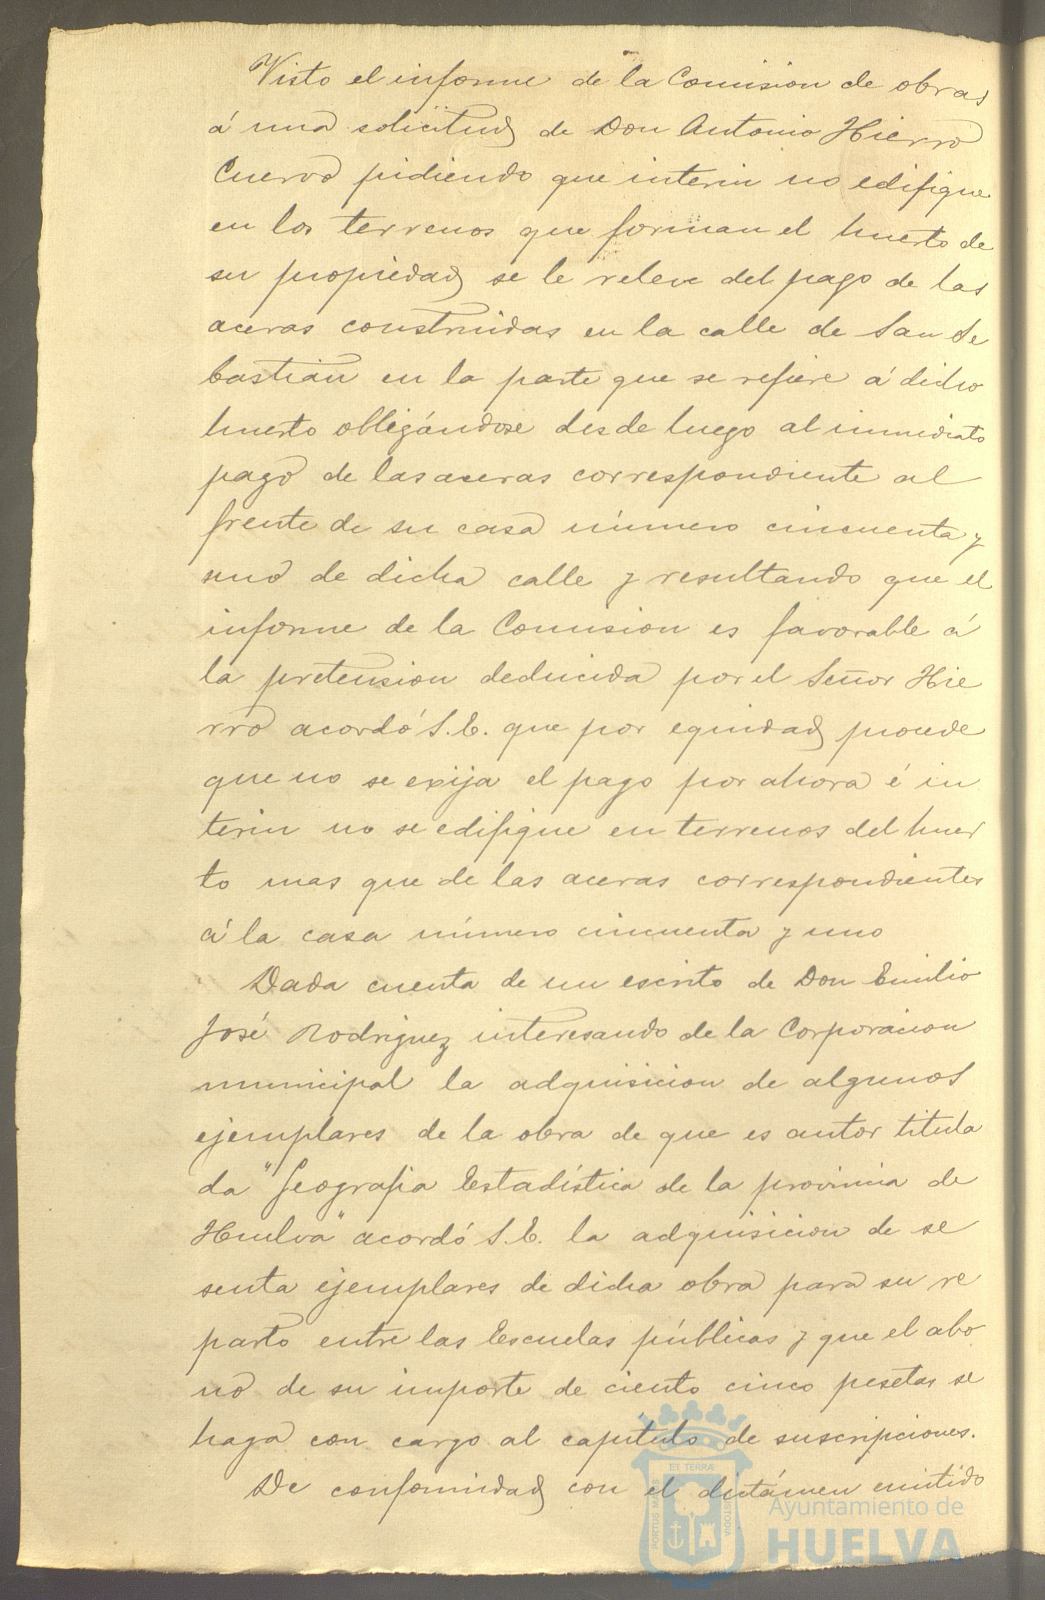 Visto el informe de la Comision de obras
á una solicitud de Don Antonio Hierro
Cuervo pidiendo que interin no edifique
en los terrenos que forman el huerto de
su propiedad se le releve del pago de las
aceras construidas en la calle de San Se
bastián en la parte que se refiere á dicho
huerto obligándose desde luego al inmediato
pago de las aceras correspondiente al
frente de su casa número cincuenta y
uno de dicha calle y resultando que el
informe de la Comision es favorable á
la pretension deducida por el Señor Hie
rro acordó S.E. que por equidad procede
que no se exija el pago por ahora é in
terin no se edifique en terrenos del huer
to mas que de las aceras correspondientes
á la casa número cincuenta y uno
Dada cuenta de un escrito de Don Emilio
José Rodriguez interesando de la Corporacion
municipal la adquisicion de algunos
ejemplares de la obra de que es autor titula
da "Geografia Estadística de la provincia de
Huelva" acordó S.E. la adquisicion de se
senta ejemplares de dicha obra para su re
parto entre las Escuelas públicas y que el abo
no de su importe de ciento cinco pesetas se
haga con cargo al capitulo de suscripciones.
De conformidad con el dictámen emitido
PORTUS MARIS ET TERRAE CUSTODIA
Ayuntamiento de
HUELVA